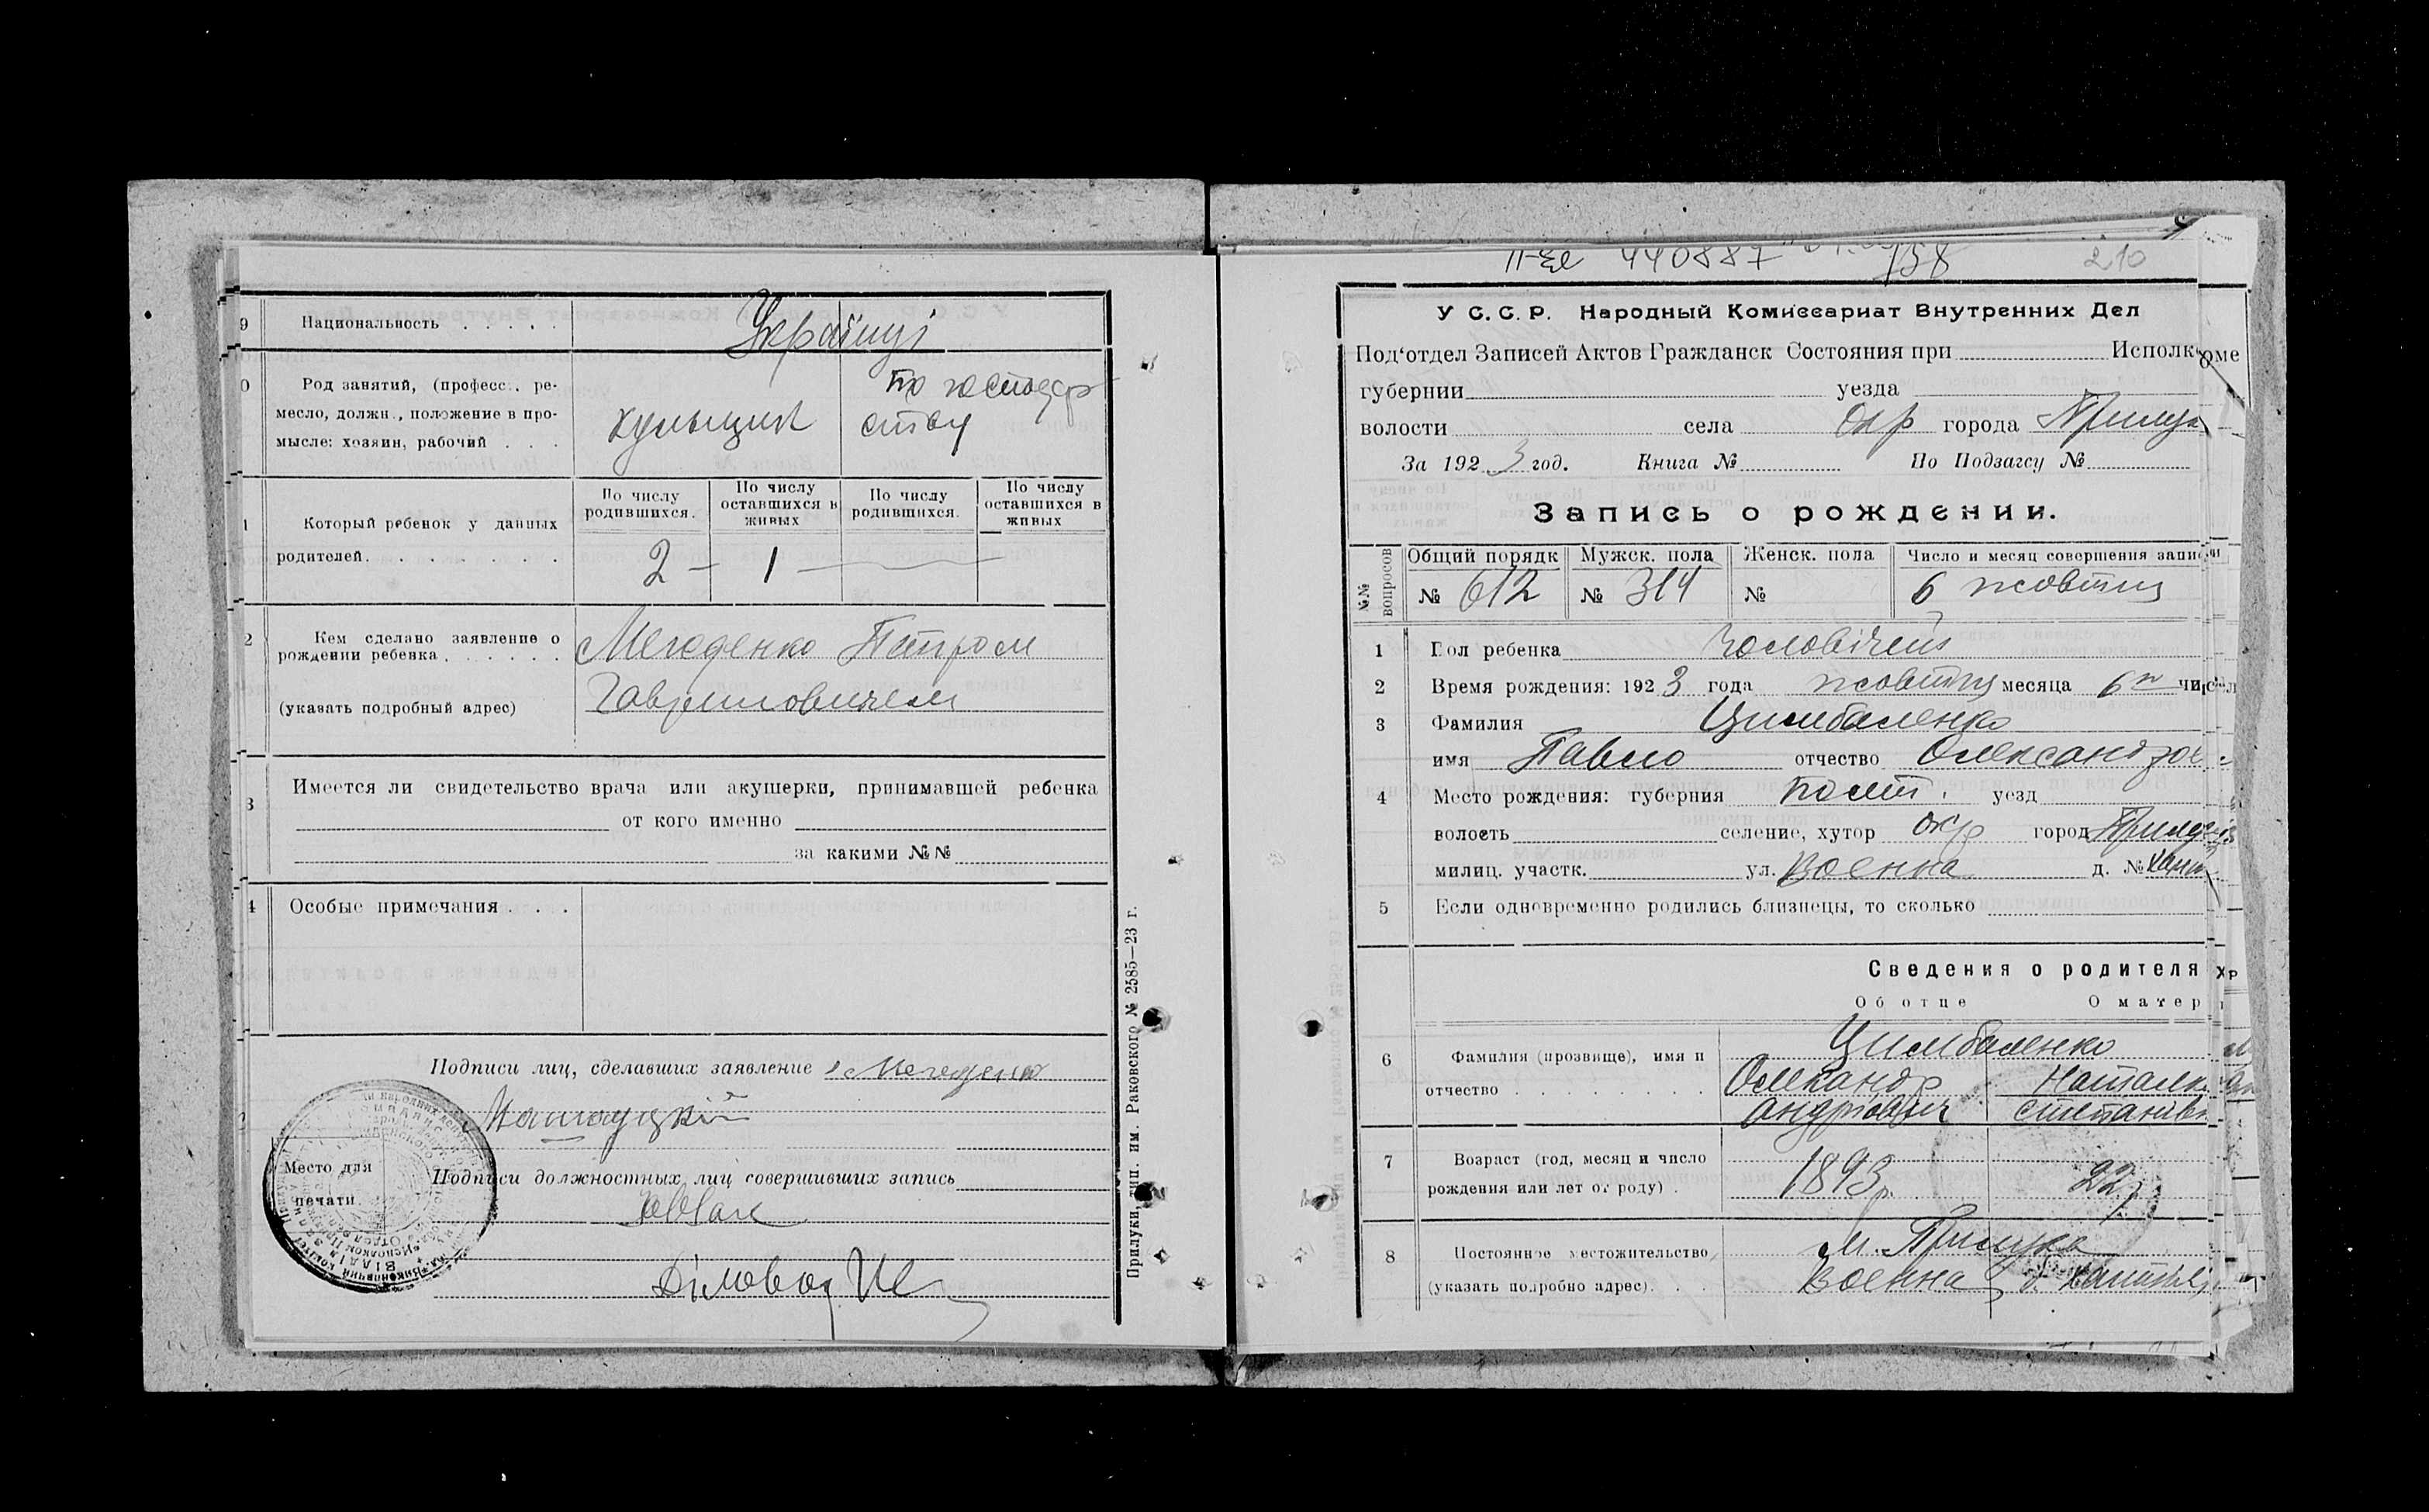 9 Национальность . . . . . Українці
0 Род занятий, (професс., ре-
месло, должн., положение в про-
мысле: хозяин, рабочий . . .
по господар
ству
1 Который ребенок у данных
родителей. . . . . . . .
По числу родившихся.
По числу оставшихся в живых
По числу родившихся.
По числу оставшихся в живых
2 — 1 —
2 Кем сделано заявление о
рождении ребенка . . . . . .
(указать подробный адрес)
Мегеденко Петром
Гавриловичем
3 Имеется ли свидетельство врача или акушерки, принимавшей ребенка
от кого именно
за какими №№
4 Особые примечания . . .
Подписи лиц, сделавших заявление Мегеденко
Место для
печати.
Подписи должностных лиц совершивших запись
Діловод
Прилуки, тип. им. Раковского № 2585—23 г.
210
У С. С. Р. Народный Комиссариат Внутренних Дел
Под'отдел Записей Актов Гражданск Состояния при Исполк
губернии уезда
волости села окр города Прилук
За 1923 год. Книга № По Подзагсу №
Запись о рождении.
№№ вопросов
Общий порядк Мужск. пола Женск. пола Число и месяц совершения записи
№ 612 № 314 № 6 жовтня
1 Пол ребенка чоловічий
2 Время рождения: 1923 года жовтня месяца 6го числ
3 Фамилия Цимбаленко
имя Павло отчество Олександров
4 Место рождения: губерния Полт. уезд
волость селение, хутор окр город Прилуки
милиц. участк. ул. Военна д. №
5 Если одновременно родились близнецы, то сколько
Сведения о родителя
Об отце О матер
6 Фамилия (прозвище), имя и
отчество . . . . . . . .
Цимбаленко
Олександр Наталк
Андріович Степанівн
7 Возраст (год, месяц и число
рождения или лет от роду) .
1893 р. 22 р
8 Постоянное местожительство
(указать подробно адрес). . .
м. Прилука
Военна